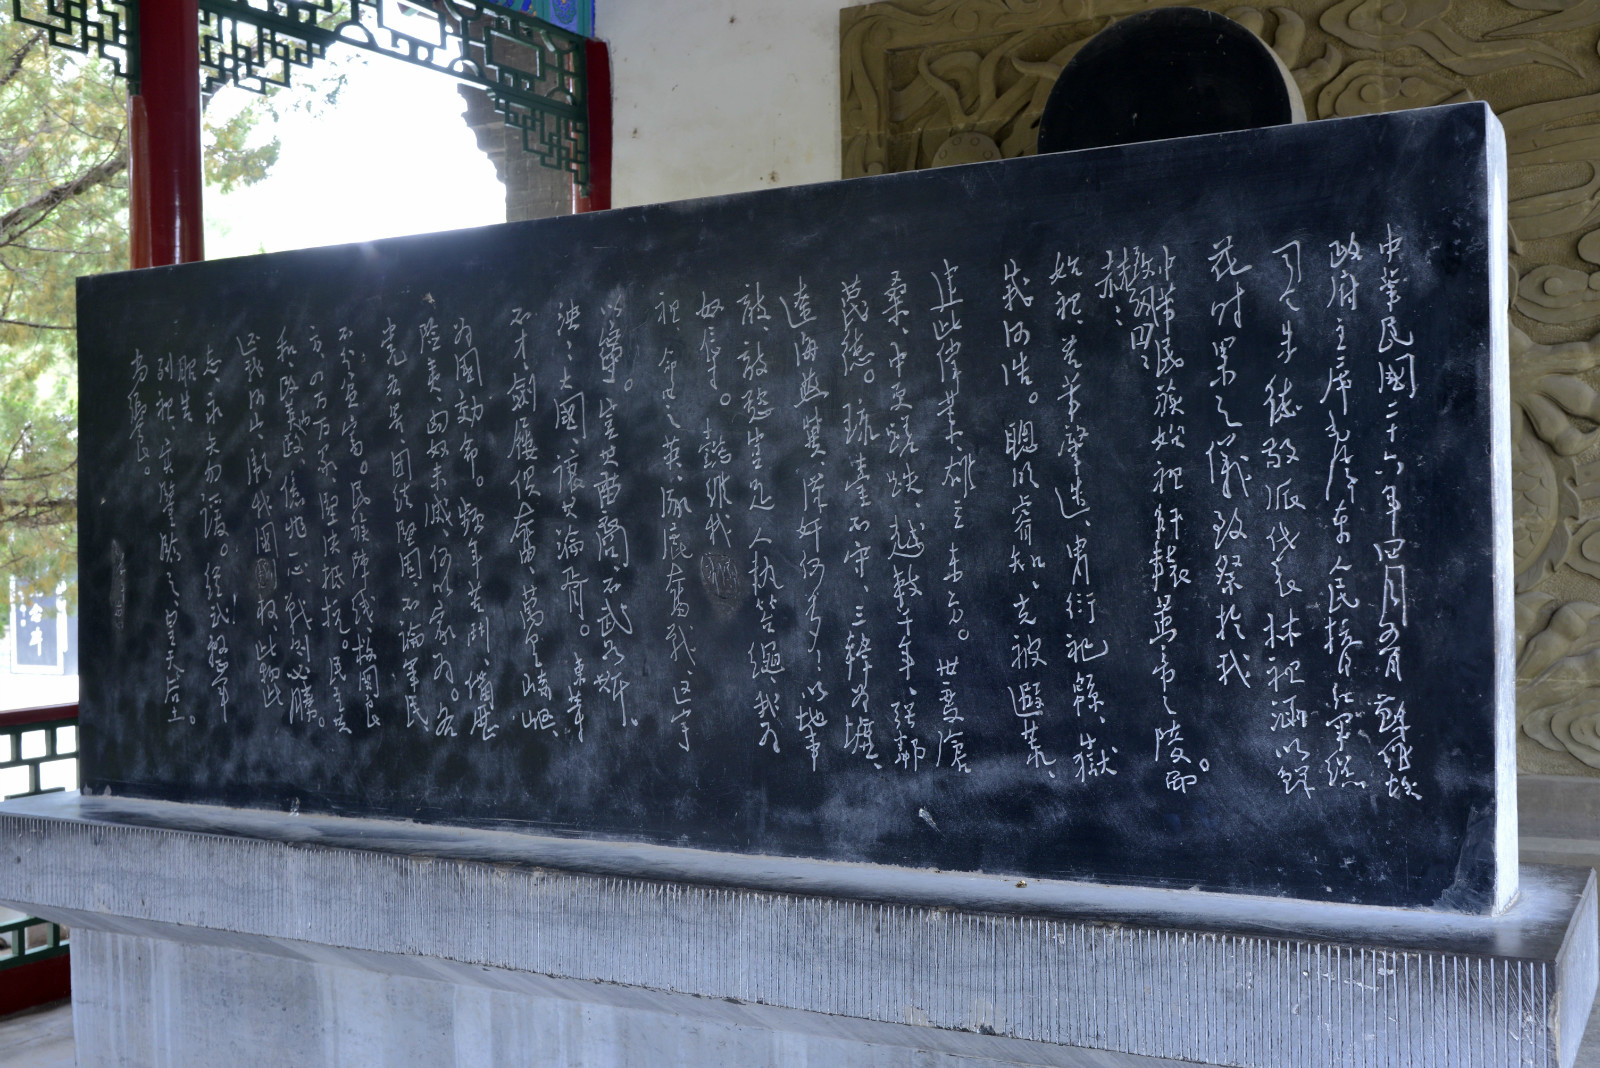 中華民國二十六年四月五日,蘇維埃
政府主席毛澤東人民抗日紅軍總
司令朱德敬派代表林祖涵以鮮
花時果之儀致祭於我
中華民族始祖軒轅黃帝之陵。而
致詞曰:
赫赫
始祖、吾華肇造、胄衍祀緜、嶽
峨河浩。聰明睿知、光被遐荒、
建此偉業、雄立東方。世變滄
桑、中更蹉跌、越數千年、強鄰
蔑德。琉臺不守、三韓為墟、
遼海燕冀、漢奸何多!以地事
敵、敵慾豈足、人執笞繩、我為
奴辱。懿維我
祖、命世之英、涿鹿奮戰、區宇
以寧。豈其苗裔、不武如斯。
泱泱大國、讓其淪胥。東等
不才、劍屨俱奮、萬里崎嶇、
為國效命。頻年苦鬥、備歷
險夷、匈奴未滅、何以家為。各
黨各界、團結堅固、不論軍民、
不分貧富。民族陣線、救國良
方、四万万眾、堅決抵抗。民主共
和、改革內政、億兆一心、戰則必勝。
還我河山、衛我國權、此物此
志、永矢勿諼。經武整軍
昭告
列祖、實鑒臨之、皇天后土。
尚饗。